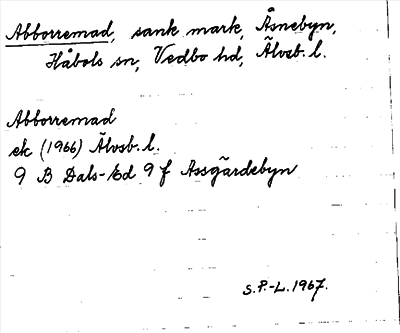 Abborremad, sank mark, Åsnebyn,
Håbols sn, Vedbo hd, Älvsb. l.
Abborremad
ek (1966) Älvsb. l.
9 B Dals-Ed 9 f Assgärdebyn
S.P.-L. 1967.